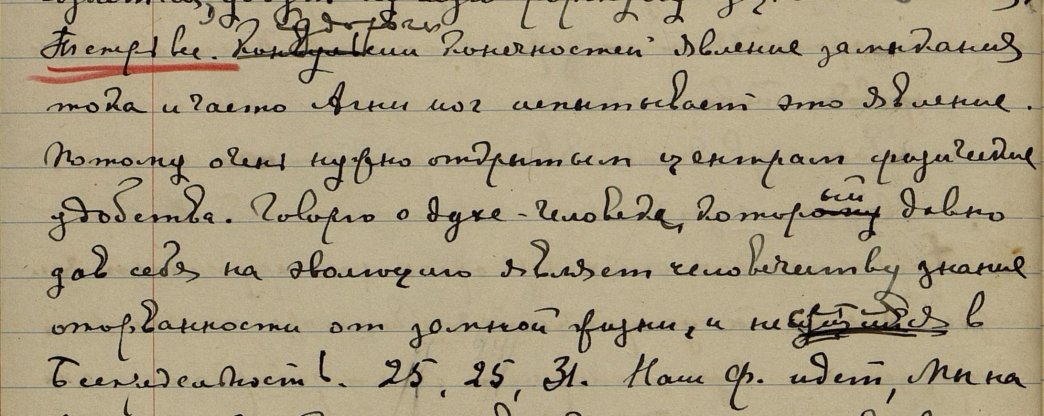 судороги
конечностей явление замыкания
тока и часто Агни иог испытывает это явление.
Потому очень нужно открытым центрам физические
удобства. Говорю о духе-человеке, который давно
дав себя на эволюцию являет человечеству знание
оторванности от земной жизни, и в
Беспредельность. 25, 25, 31. Наш Ф. идет, Мы на